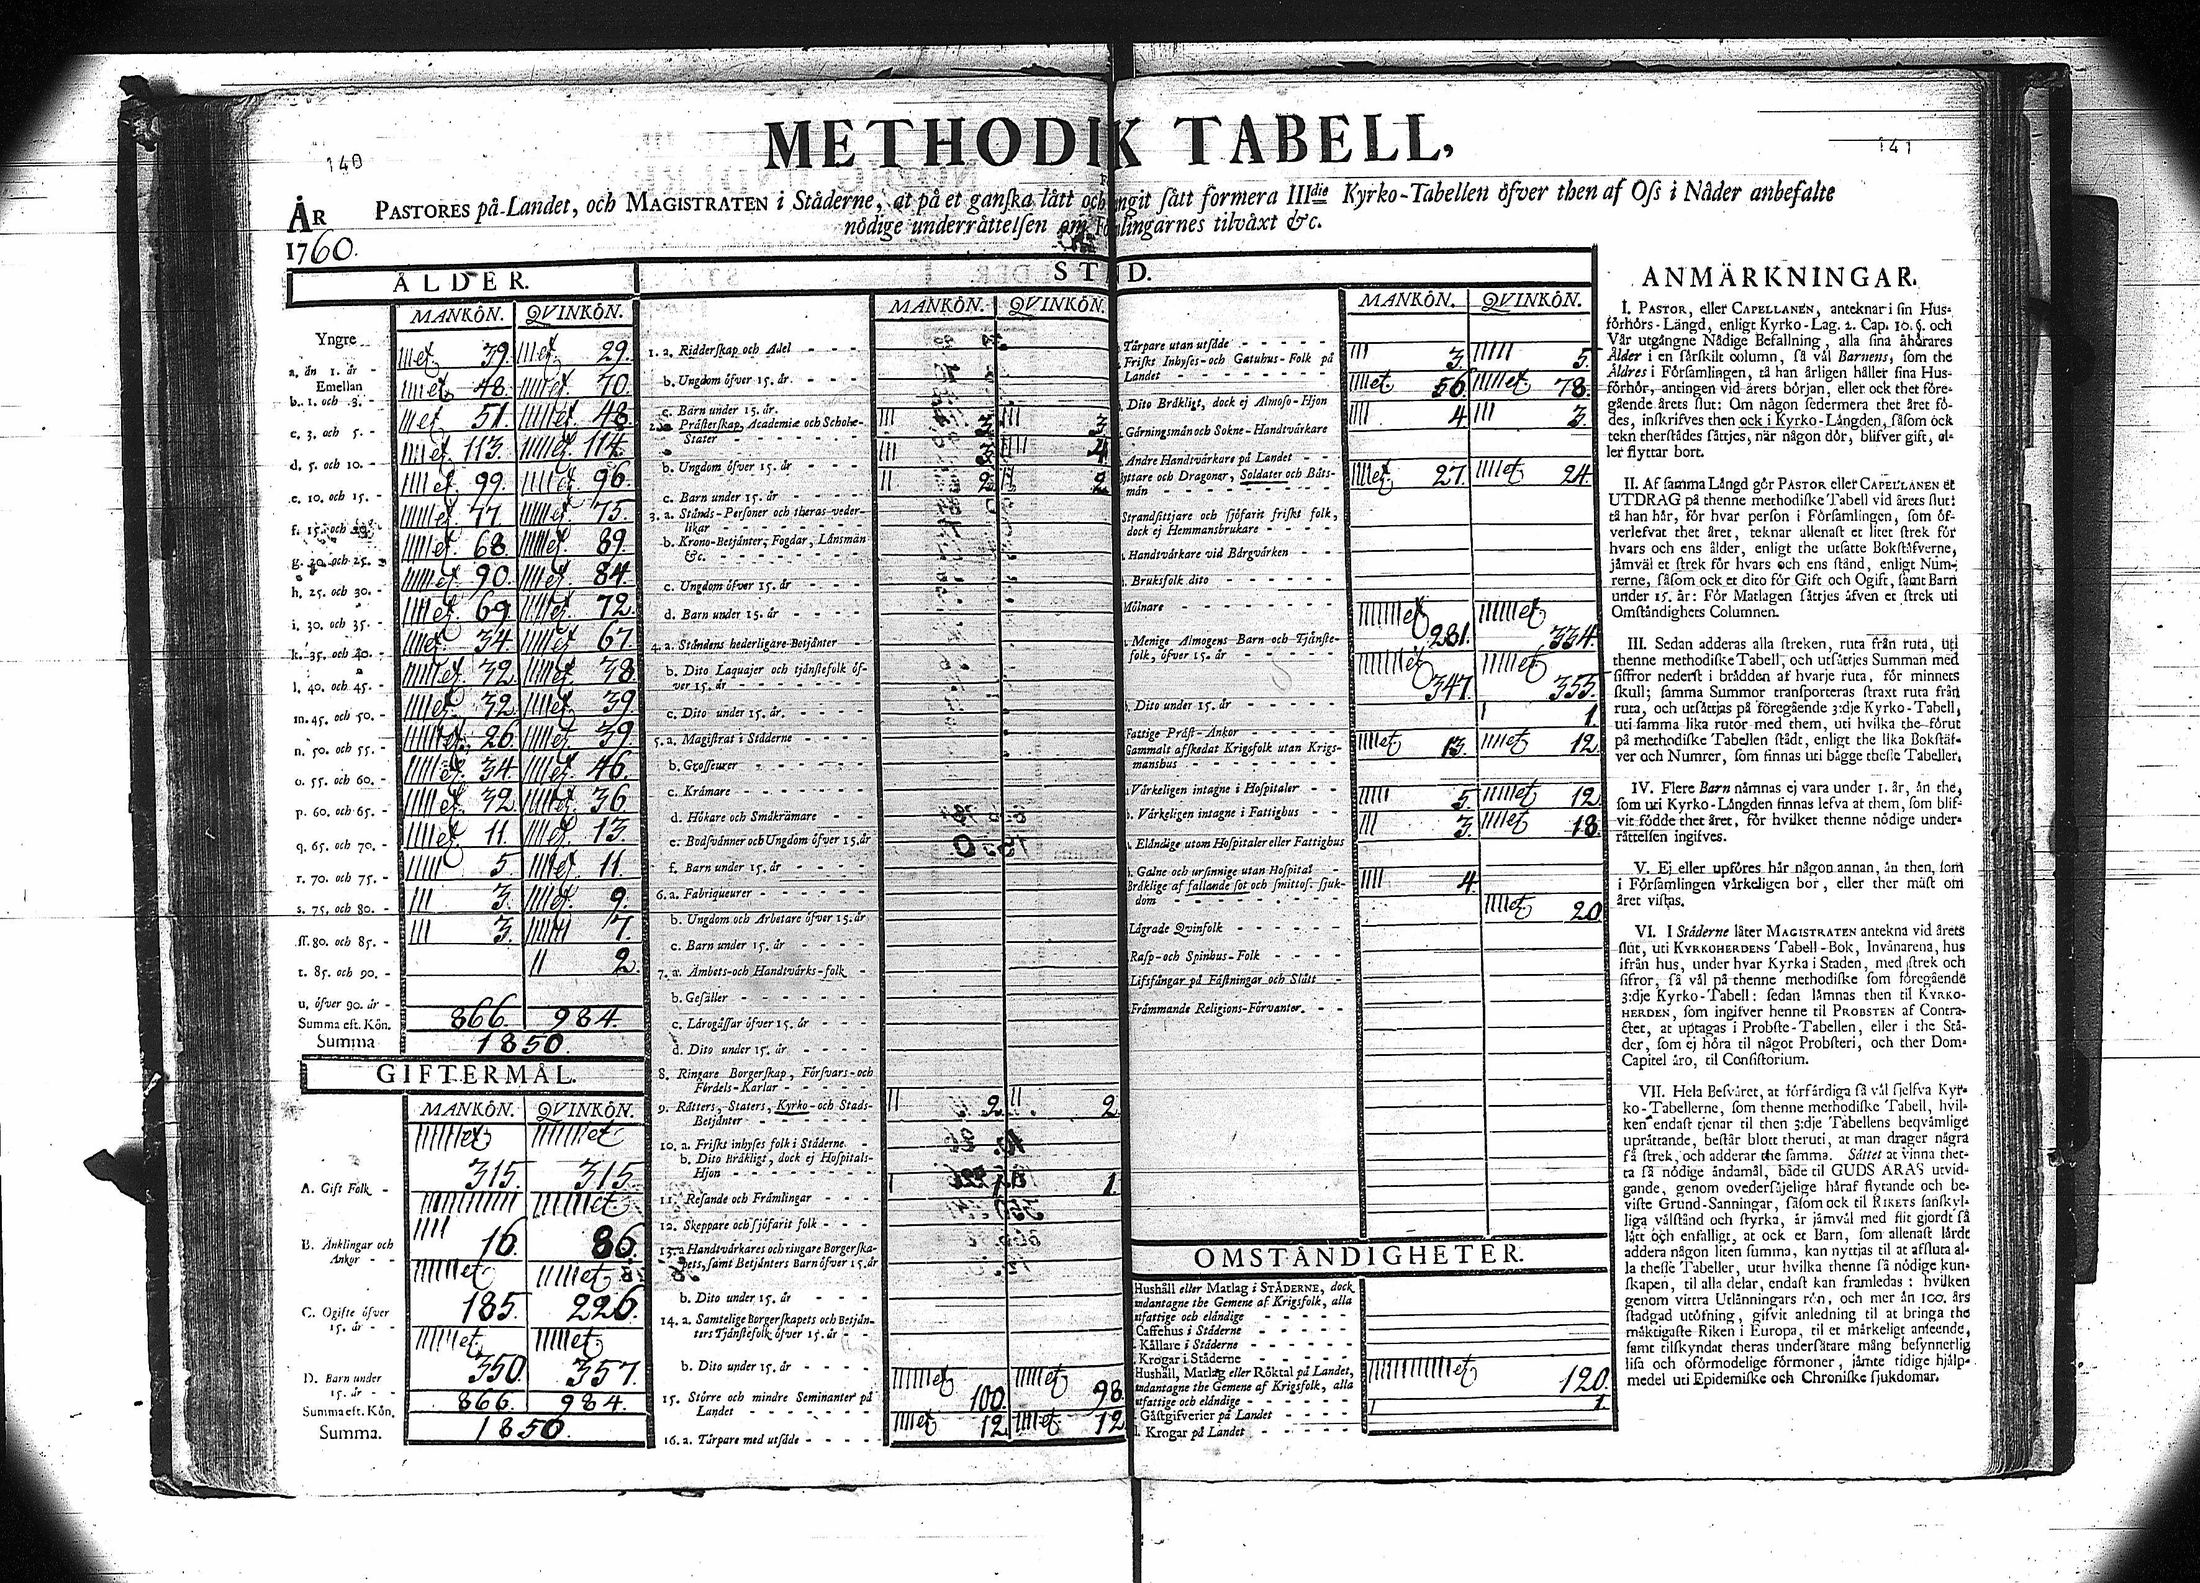 140
141
METHODIK TABELL,
ÅR
1760.
PASTORES på Landet, och MAGISTRATEN i Städerne, at på et ganska lått och
sått formera IIIdie Kyrko-Tabellen öfver then af Oss i Nåder anbefalte
nödige underråttelsen om
lingarnes tilvåxt &c.
ÅLDER.
MANKÖN. QVINKÖN.
Yngre
a. ån 1. år - 39. 29.
Emellan
b. 1. och 3. - 48. 70.
c. 3. och 5. - 51. 48.
d. 5. och 10. - 113. 114.
e. 10. och 15. - 99. 96.
f. 15. och 77. 75.
g. och 25. 68. 89.
h. 25. och 30. - 90. 84.
i. 30. och 35. - 69. 72.
k. 35. och 40. - 34. 67.
l. 40. och 45. - 32. 38.
m. 45. och 50. - 32. 39.
n. 50. och 55. - 26. 39.
o. 55. och 60. - 34. 46.
p. 60. och 65. - 32. 36.
q. 65. och 70. - 11. 13.
r. 70. och 75. - 5. 11.
s. 75. och 80. - 3. 9.
ff. 80. och 85. - 3. 7.
t. 85. och 90. - 2.
u. öfver 90. år -
Summa eft. Kön. 866. 984.
Summa 1850.
GIFTERMÅL.
MANKÖN. QVINKÖN.
A. Gift Folk - 315. 315.
B. Änklingar och
Änkor - - 16. 86.
C. Ogifte öfver
15. år - - 185. 226.
D. Barn under
15. år - - 350. 357.
Summa eft. Kön. 866. 984.
Summa. 1850.
STÅND.
MANKÖN. QVINKÖN.
1. a. Ridderskap och Adel - - - -
b. Ungdom öfver 15. år. - - -
c. Barn under 15. år.
2. a. Prästerskap, Academiæ och Scholæ-
Stater - - - - 3. 3.
b. Ungdom öfver 15. år - - - 3. 4.
c. Barn under 15. år - - - 2. 2.
3. a. Stånds-Personer och theras veder-
likar - - - -
b. Krono-Betjänter, Fogdar, Länsmän
&c. - - - -
c. Ungdom öfver 15. år - - -
d. Barn under 15. år - - - -
4. a. Ståndens hederligare Betjänter - -
b. Dito Laquajer och tjänstefolk öf-
ver 15. år - - - -
c. Dito under 15. år. - - - -
5. a. Magistrat i Städerne - - - -
b. Grosseurer - - - -
c. Krämare - - - -
d. Hökare och Småkrämare - - -
e. Bodsvänner och Ungdom öfver 15. år
f. Barn under 15. år - - - -
6. a. Fabriqueurer - - - -
b. Ungdom och Arbetare öfver 15. år
c. Barn under 15. år - - - -
7. a. Ämbets- och Handtvärks-folk -
b. Gesäller - - - -
c. Lärogåssar öfver 15. år - - -
d. Dito under 15. år - - - -
8. Ringare Borgerskap, Försvars- och
Fördels-Karlar - - - -
9. Rätters, Staters, Kyrko- och Stads-
Betjänter - - - - 2. 2.
10. a. Friskt inhyses folk i Städerne. -
b. Dito Bräkligt, dock ej Hospitals-
Hjon - - - - 1.
11. Resande och Främlingar - - -
12. Skeppare och sjöfarit folk - - -
13. a Handtvärkares och ringare Borgerska-
pets, samt Betjänters Barn öfver 15. år
b. Dito under 15. år - - - -
14. a. Samtelige Borgerskapets och Betjän-
ters Tjänstefolk öfver 15. år - -
b. Dito under 15. år - - - -
15. Större och mindre Seminanter på
Landet - - - - 100. 98.
16. a. Tärpare med utsäde - - - - 12. 12.
MANKÖN. QVINKÖN.
Tårpare utan utsäde - - - - 3. 5.
Friskt Inhyses- och Gatuhus-Folk på
Landet - - - - 56. 78.
Dito Bräkligt, dock ej Almoso-Hjon 4. 3.
Gårningsmän och Sokne-Handtvärkare
Andre Handtvärkare på Landet - - 27. 24.
Ryttare och Dragoner, Soldater och Båts-
män - - - -
Strandsittjare och sjöfarit friskt folk,
dock ej Hemmansbrukare - - -
Handtvärkare vid Bärgvärken - -
Bruksfolk dito - - - -
Mölnare - - - -
Menige Almogens Barn och Tjänste-
folk, öfver 15. år - - - - 281. 334.
Dito under 15. år - - - - 347. 355.
Fattige Präst-Änkor - - - - 1.
Gammalt afskedat Krigsfolk utan Krigs-
manshus - - - - 13. 12.
Värkeligen intagne i Hospitaler - -
Värkeligen intagne i Fattighus - - 5. 12.
Eländige utom Hospitaler eller Fattighus 3. 18.
Galne och ursinnige utan Hospital -
Bräklige af fallande sot och smittos. sjuk-
dom - - - - 4.
Lägrade Qvinfolk - - - - 20
Rasp- och Spinhus-Folk - - - -
Lifsfångar på Fästningar och Slått -
Främmande Religions-Förvanter. - -
OMSTÄNDIGHETER.
Hushåll eller Matlag i STÄDERNE, dock
undantagne the Gemene af Krigsfolk, alla
utfattige och eländige - - - -
Caffehus i Städerne - - - -
Kållare i Städerne - - - -
Krogar i Städerne - - - -
Hushåll, Matlag eller Röktal på Landet,
undantagne the Gemene af Krigsfolk, alla
utfattige och eländige - - - - 120.
Gästgifverier på Landet - - - - 1.
Krogar på Landet - - - -
ANMÄRKNINGAR.
I. PASTOR, eller CAPELLANEN, anteknar i sin Hus-
förhörs-Längd, enligt Kyrko-Lag. 2. Cap. 10. §. och
Vår utgångne Nådige Befallning, alla sina åhörares
Ålder i en särskilt column, så väl Barnens, som the
Äldres i Församlingen, tå han årligen håller sina Hus-
förhör, antingen vid årets början, eller ock thet före-
gående årets slut: Om någon sedermera thet året fö-
des, inskrifves then ock i Kyrko-Längden, såsom ock
tekn therstädes sättjes, när någon dör, blifver gift, el-
ler flyttar bort.
II. Af samma Längd gör PASTOR eller CAPELLANEN et
UTDRAG på thenne methodiske Tabell vid årets slut:
tå han här, för hvar person i Församlingen, som öf-
verlefvat thet året, teknar allenast et litet strek för
hvars och ens ålder, enligt the utsatte Bokstäfverne,
jämväl et strek för hvars och ens stånd, enligt Num-
rerne, såsom ock et dito för Gift och Ogift, samt Barn
under 15. år: För Matlagen sättjes äfven et strek uti
Omständighets Columnen.
III. Sedan adderas alla streken, ruta från ruta, uti
thenne methodiske Tabell, och utsättjes Summan med
siffror nederst i brädden af hvarje ruta, för minnets
skull; samma Summor transporteras straxt ruta från
ruta, och utsättjas på föregående 3:dje Kyrko-Tabell,
uti samma lika rutor med them, uti hvilka the förut
på methodiske Tabellen städt, enligt the lika Bokstäf-
ver och Numrer, som finnas uti bägge thesse Tabeller.
IV. Flere Barn nämnas ej vara under 1. år, än the,
som uti Kyrko-Längden finnas lefva at them, som blif-
vit födde thet året, för hvilket thenne nödige under-
rättelsen ingifves.
V. Ej eller upföres här någon annan, än then, som
i Församlingen värkeligen bor, eller ther mäst om
året vistas.
VI. I Städerne låter MAGISTRATEN antekna vid årets
slut, uti KYRKOHERDENS Tabell-Bok, Invånarena, hus
ifrån hus, under hvar Kyrka i Staden, med strek och
sifror, så väl på thenne methodiske som föregående
3:dje Kyrko-Tabell: sedan lämnas then til KYRKO-
HERDEN, som ingifver henne til PROBSTEN af Contra-
ctet, at uptagas i Probste-Tabellen, eller i the Stä-
der, som ej höra til något Probsteri, och ther Dom-
Capitel äro, til Consistorium.
VII. Hela Besväret, at förfärdiga så väl sjelfva Kyr-
ko-Tabellerne, som thenne methodiske Tabell, hvil-
ken endast tjenar til then 3:dje Tabellens beqvämlige
uprättande, består blott theruti, at man drager några
få strek, och adderar the samma. Sättet at vinna thet-
ta så nödige ändamål, både til GUDS ÄRAS utvid-
gande, genom ovedersäjelige häraf flytande och be-
viste Grund-Sanningar, såsom ock til RIKETS sanskyl-
liga välstånd och styrka, är jämväl med flit gjordt så
lätt och enfalligt, at ock et Barn, som allenast lärdt
addera någon liten summa, kan nyttjas til at afsluta al-
la thesse Tabeller, utur hvilka thenne så nödige kun-
skapen, til alla delar, endast kan framledas: hvilken
genom vittra Utlänningars rön, och mer än 100. års
stadgad utöfning, gifvit anledning til at bringa the
mäktigaste Riken i Europa, til et märkeligt anseende,
samt tilskyndat theras undersåtare mång besynnerlig
lisa och oförmodelige förmoner, jämte tidige hjälp-
medel uti Epidemiske och Chroniske sjukdomar.